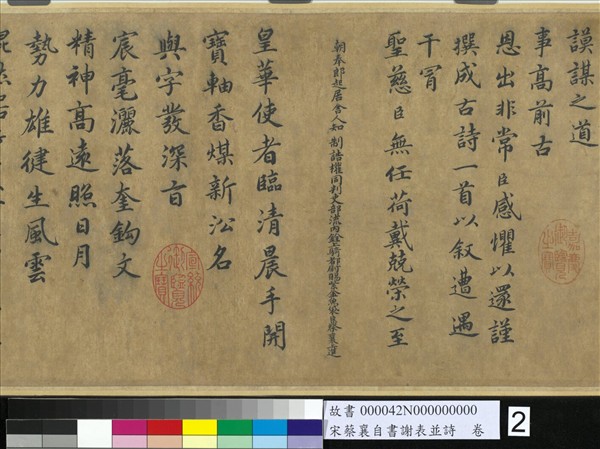 謨謀之道
事高前古
恩出非常臣感懼以還謹
撰成古詩一首以叙遭遇
干冒
聖慈臣無任荷戴兢榮之至
朝奉郎起居舍人知 制誥權同判吏部流內銓上騎都尉賜紫金魚袋臣蔡襄上進
皇華使者臨清晨手開
寶軸香煤新沁名
與字發深旨
宸毫灑落奎鈎文
精神高遠照日月
勢力雄健生風雲
乾隆御覽之寶
宣統御覽之寶
故書 000042N000000000
宋蔡襄自書謝表並詩 卷
2